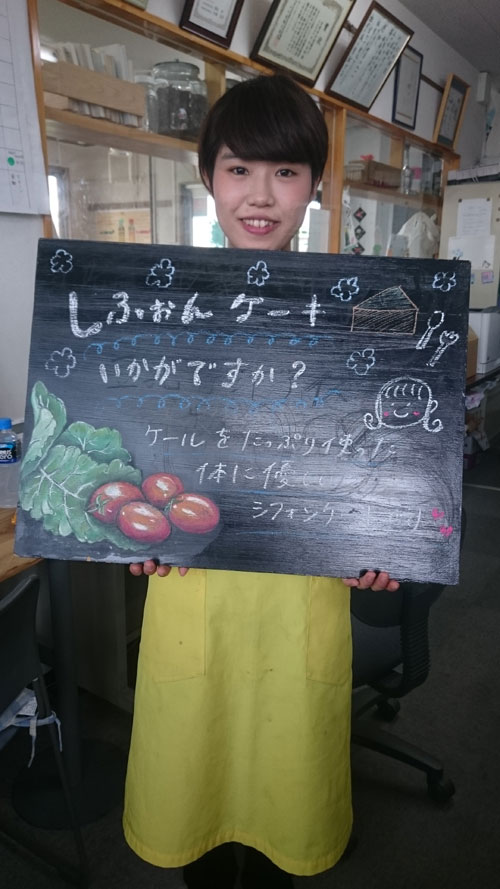 しふぉんケーキ
いかがですか？
ケールをたっぷり使った
体に優しい
シフォンケーキ